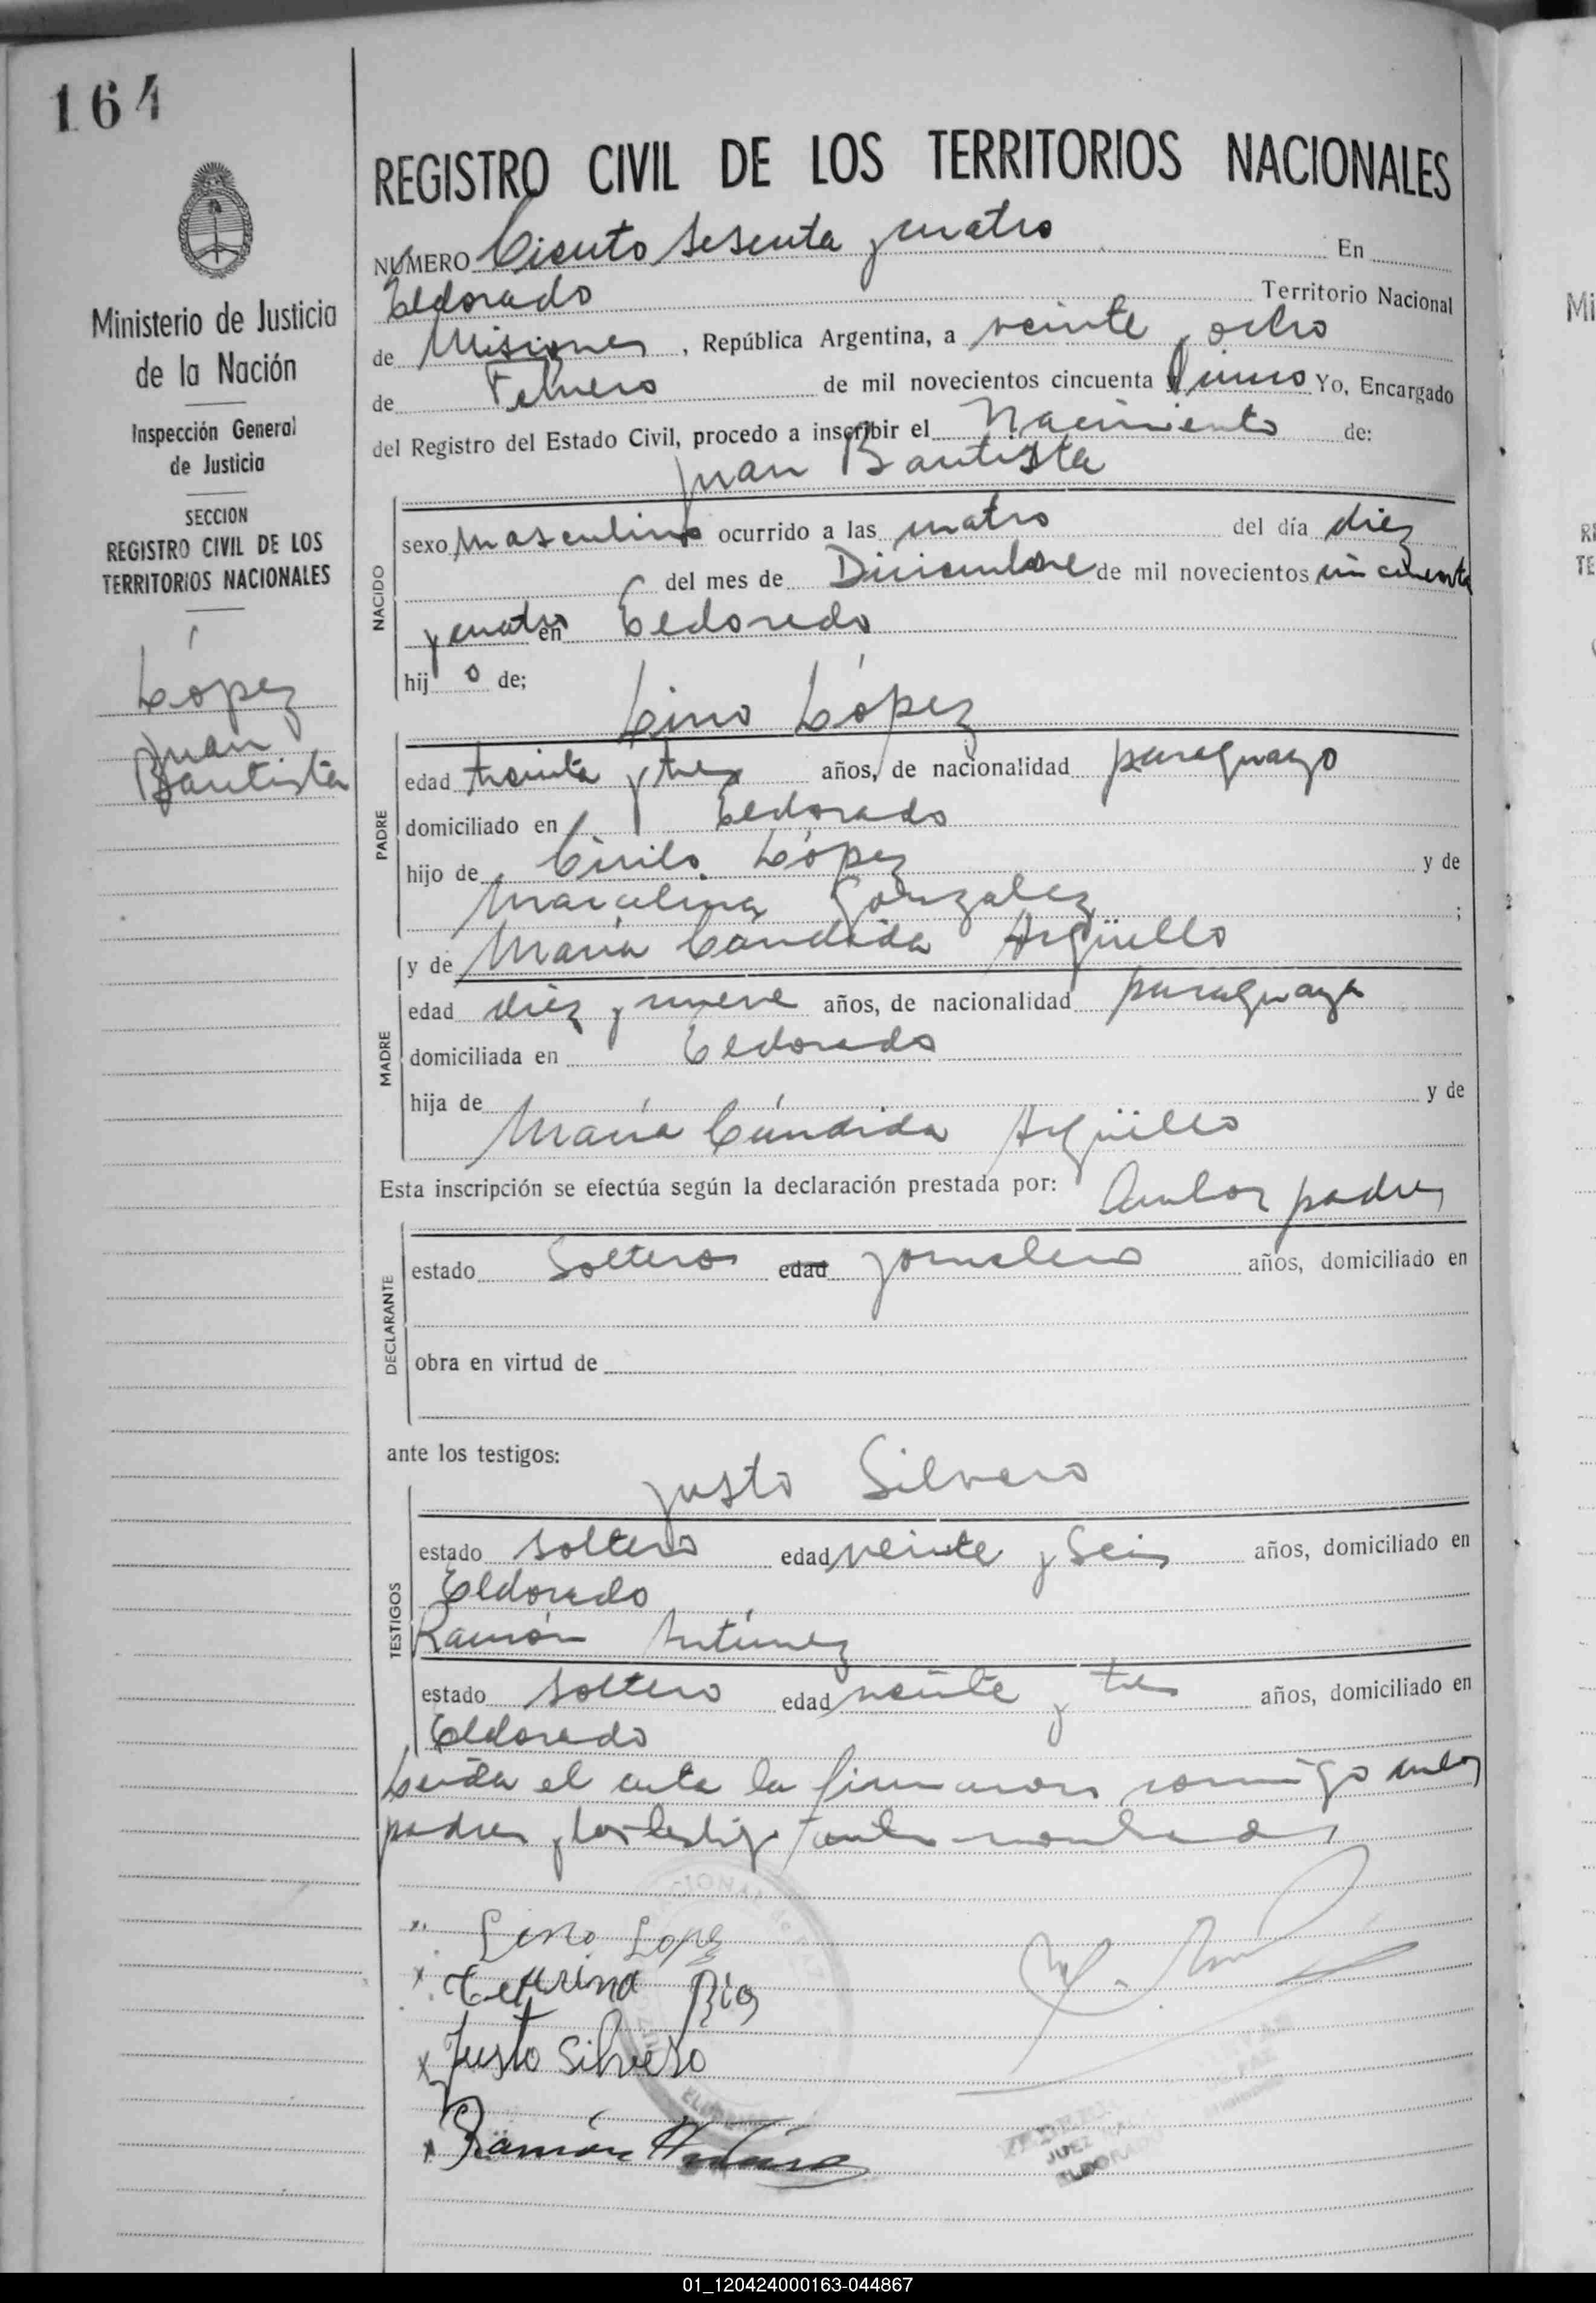 164
REGISTRO CIVIL DE LOS TERRITORIOS NACIONALES
NÚMERO Ciento sesenta y cuatro En
Eldorado Territorio Nacional
de Misiones, República Argentina, a veinte y ocho
de Febrero de mil novecientos cincuenta y cinco Yo, Encargado
del Registro del Estado Civil, procedo a inscribir el Nacimiento de:
Juan Bautista
NACIDO
sexo masculino ocurrido a las cuatro del día diez
del mes de Diciembre de mil novecientos cincuenta
y cuatro en Eldorado
hijo de;
Lino López
PADRE
edad treinta y tres años, de nacionalidad paraguayo
domiciliado en Eldorado
hijo de Cirilo López y de
Marcelina Gonzalez ;
y de María Cándida Argüello
MADRE
edad diez y nueve años, de nacionalidad paraguaya
domiciliada en Eldorado
hija de y de
María Cándida Argüello
Esta inscripción se efectúa según la declaración prestada por: Ambos padres
DECLARANTE
estado Solteros edad jornalero años, domiciliado en
obra en virtud de
ante los testigos:
Justo Silvero
TESTIGOS
estado soltero edad veinte y seis años, domiciliado en
Eldorado
Ramón Antúnez
estado soltero edad veinte y tres años, domiciliado en
Eldorado
Leída el acta la firmaron conmigo ambos
padres y los testigos antes nombrados
Lino Lopez
Justo Silvero
Ramón
JUEZ
ELDORADO
Ministerio de Justicia
de la Nación
Inspección General
de Justicia
SECCION
REGISTRO CIVIL DE LOS
TERRITORIOS NACIONALES
López
Juan
Bautista
01_120424000163-044867